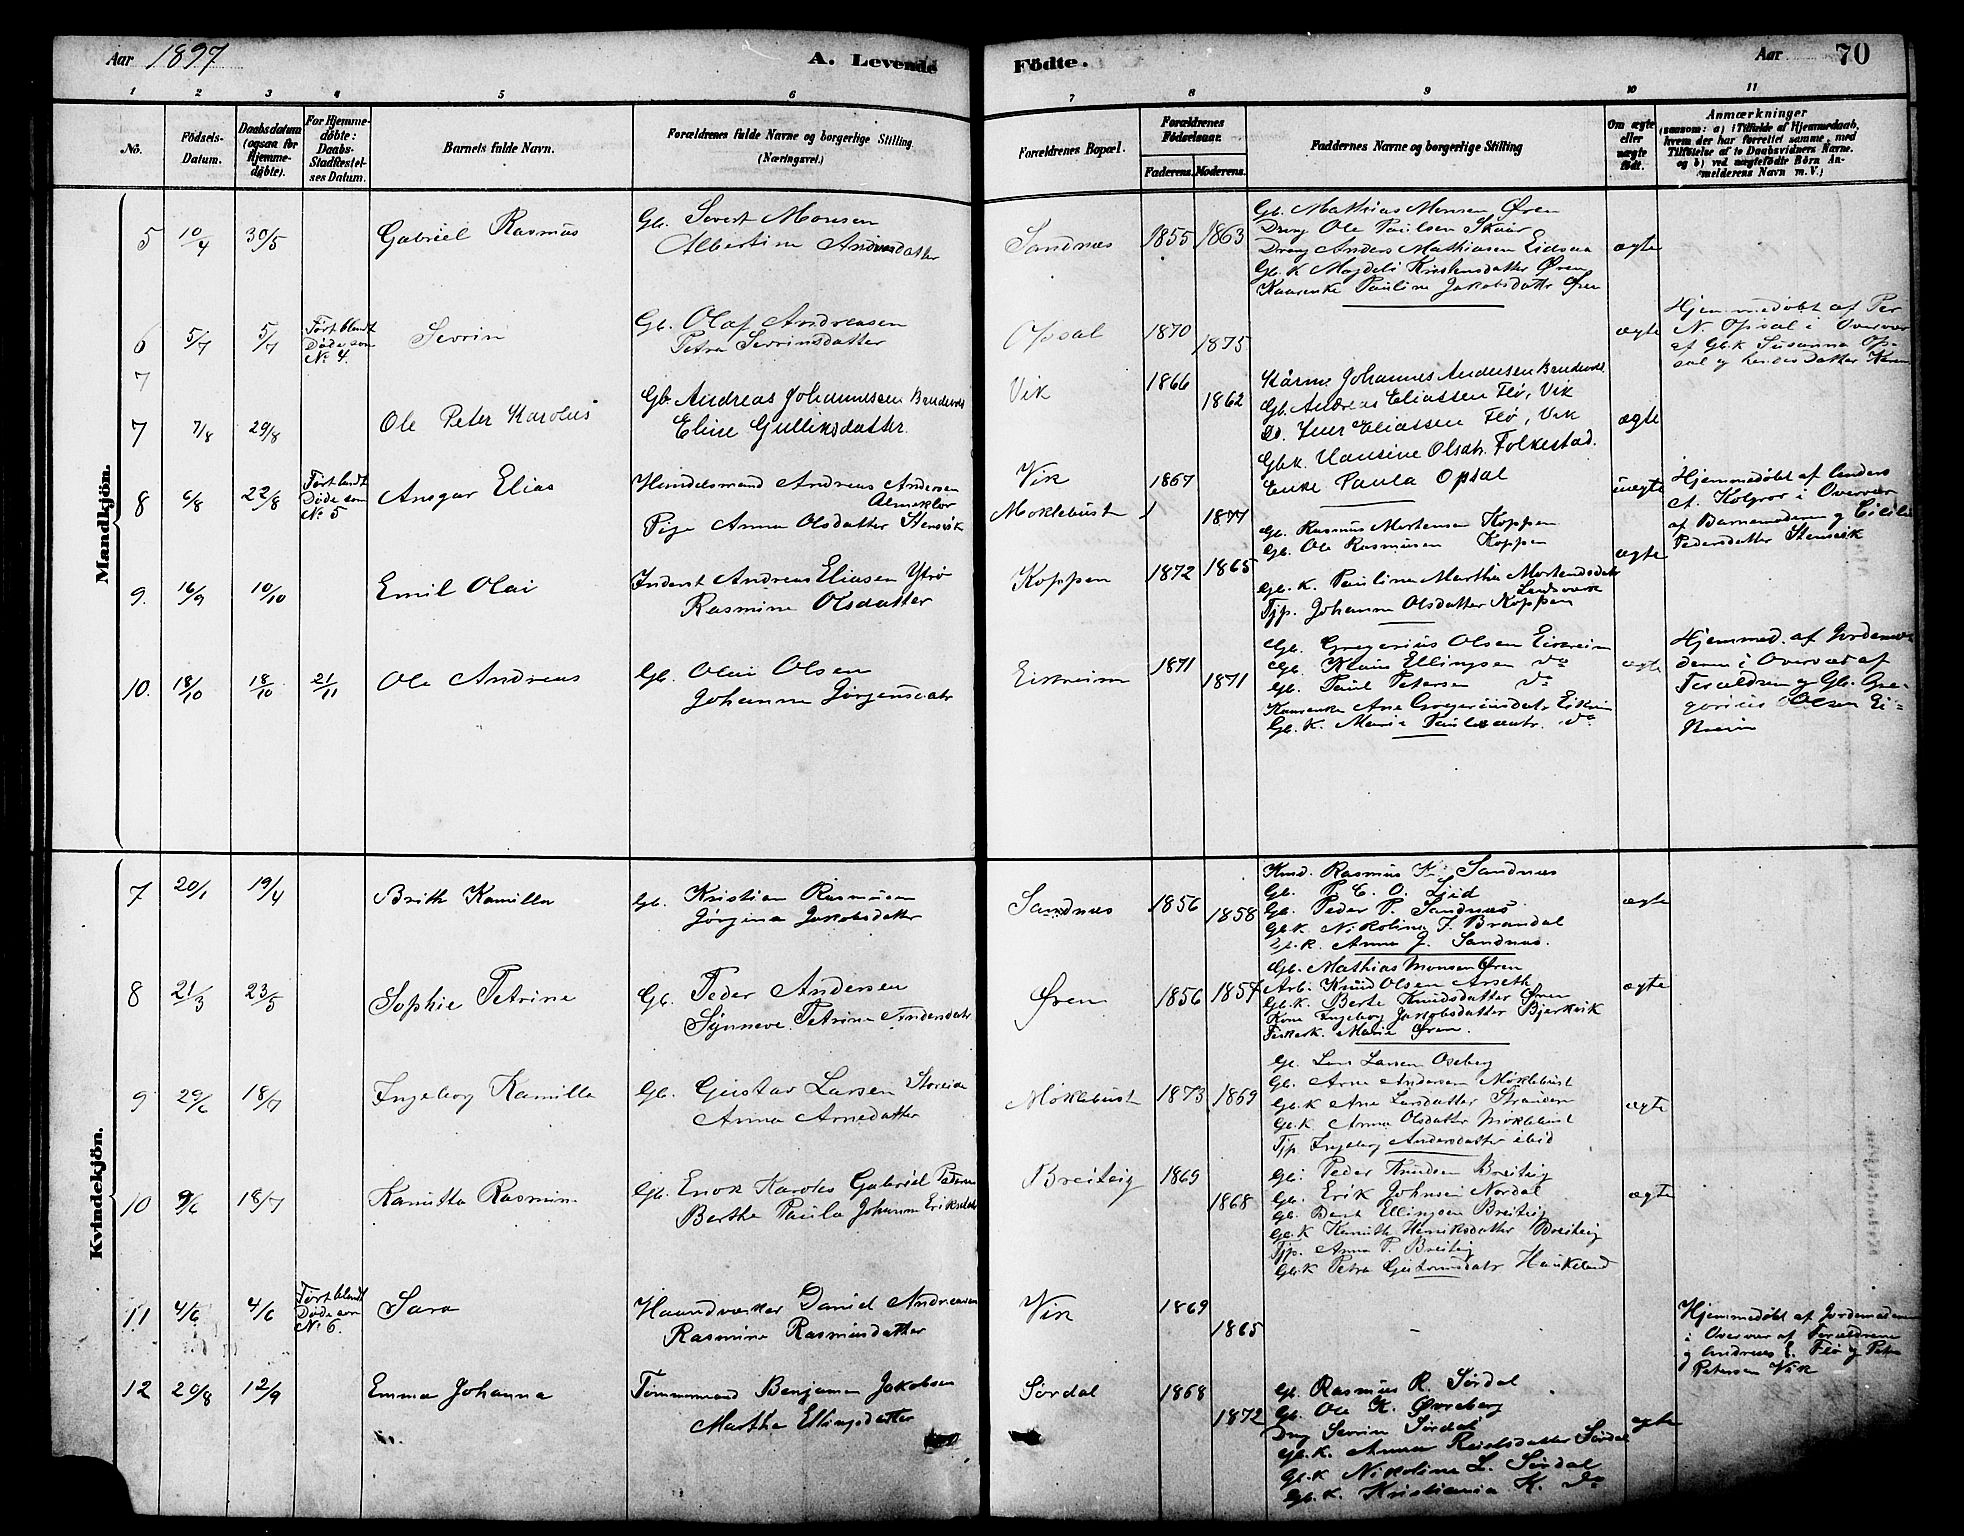 Aar 1897 A. Levende Födte. Aar 70
1 2 3 4 5 6 7 8 9 10 11
No.
Födsels-Datum.
Daabsdatum (ogsaa for Hjemmedöbte).
For Hjemmedöbte: Daabs-Stadfæstelses Datum.
Barnets fulde Navn.
Forældrenes fulde Navne og borgerlige Stilling (Næringsvei.)
Forældrenes Bopæl.
Forældrenes Födselsaar.
Faderens. Moderens.
Faddernes Navne og borgerlige Stilling
Om ægte eller uægte födt.
Anmærkninger
(saasom: a) i Tilfælde af Hjemmedaab, hvem der har forrettet samme, med Tilföielse af to Daabsvidners Navne, og b) ved uægtefödte Börn Anmelderens Navn m. V.)
Mandkjön.
5 10/4 30/5 Gabriel Rasmus
Gb. Sivert Monsen
Albertine Andersdatter
Sandnæs 1855 1863
Gb. Mathias Monsen Øren
Dreng Ole Paulsen Skaar
Dreng Anders Mathiasen Eidsaa
Gb.K Magdeli Kristensdatter Øren
Kaarenke Pauline Jakobsdattr Øren
ægte
6 5/7 5/7
Ført blandt
Døde som
No 4.
Sevrin
Gb. Olaf Andreasen
Petra Sevrinsdatter
Opsal 1870 1875
ægte
Hjemmedøbt af Per
N. Opsal i Overvær
af Gbk Susanna Op-
sal og hendes datter Karen
7
7 7/8 29/8 Ole Peter Karolus
Gb. Andreas Johannesen Brudevol
Eline Gulliksdatter.
Vik 1866 1862
Kårm. Johannes Andersen Brudevol
Gb. Andreas Eliassen Flø, Vik
D. Iver Eliassen Flø, Vik
Gbk. Hansine Olsdtr. Folkestad.
Enke Paula Opsal
ægte
8 6/8 22/8
Ført blandt
Døde som
No 5
Ansgar Elias
Handelsmand Andreas Andersen
Almeklov
Pige Anna Olsdatter Stensvik
Vik 1867
Moklebust 1877
uægte
Hjemmedøbt af Anders
A. Kolgrov i Overvær
af Barnemoderen og Cicilie
Pedersdatter Stensvik
9. 16/9 10/10 Emil Olai
Inderst Andreas Eliasen Ytrø
Rasmine Olsdatter
Koppen 1872 1865
Gb. Rasmus Mortensen Koppen
Gb. Ole Rasmusen Koppen
Gb.K. Pauline Martha Mortensdatr
Landsverk
Tjp. Johanne Olsdatter Koppen
ægte
10. 18/10 18/10 21/11 Ole Andreas
Gb. Olai Olsen
Johanne Jørgensdatr
Eikreim 1871 1871
Gb. Gregorius Olsen Eikreim
Gb. Klaus Ellingsen do
Gb. Paul Petersen do
Kaarenke Ane Gregoriusdatr Eikreim
Gb.K. Marie Paulsdatr. do
ægte
Hjemmed. af Jordemo-
deren i Overvær af
Forældren og Gb. Gre-
gorius Olsen Ei-
kreim
Kvindekjön.
7 20/1 19/4 Brith Kamilla
Gb. Kristian Rasmusen
Jørgine Jakobsdatter
Sandnæs 1856 1858
Kaard. Rasmus K. Sandnæs
Gb. P. C. O. Ljød
Gb. Peder P. Sandnæs
Gb.K. Nikoline J. Brandal
Gb.K. Anna J. Sandnæs.
ægte
8 21/3 23/5 Sophie Petrine
Gb. Peder Andersen
Synneve Petrine Andersdatr
Øren 1856 1857
Gb. Mathias Monsen Øren
Arb. Knud Olsen Arseth
Gb.K. Berte Knudsdatter Øren
Kone Ingeborg Jakobsdatter Bjørkvik
Fiskerk. Marie Øren.
ægte
9 29/6 18/7 Ingeborg Kamilla
Gb. Gustav Larsen Storeide
Anna Arnedatter
Møklebust 1873 1869
Gb. Lars Larsen Oseberg
Gb. Arne Andersen Møklebust
Gb.K Ane Larsdatter
Gb.K. Anna Olsdatter Møklebust
Tjp. Ingeborg Andersdatter ibid
ægte
10 9/6 18/7 Kanutta Rasmine
Gb. Enok Karolus Gabriel Pedersen
Berthe Paula Johanne Eriksdatr
Breiteig 1869 1868
Gb. Peder Knudsen Breiteig
Gb. Erik Johnsen Nordal
Gb. Bent Ellingsen Breiteig
Gb.K Kanutte Henriksdatter Breiteig
Tjp. Anna P. Breiteig
Gb.K Petra Guttormsdatr Haukeland
ægte
11 4/6 4/6
Ført blandt
Døde som
No 6.
Sara
Haandværker Daniel Andreasen
Rasmine Rasmusdatter
Vik 1869 1865
Hjemmedøbt af Jordemoderen
i Overvær af Forældrene
og Andreas E. Flø og Peter
Petersen Vik
12 20/8 12/9 Emma Johanna
Tømmermand Benjamin Jakobsen
Martha Ellingsdatter
Sørdal 1868 1872
Gb. Rasmus R. Sørdal
Gb. Ole K. Øvreberg
Dreng Sevrin Sørdal
Gb.K. Anna Rasdatter Sørdal
Gb.K Nikoline L. Sørdal
Gb.K. Kristianna K. do
ægte